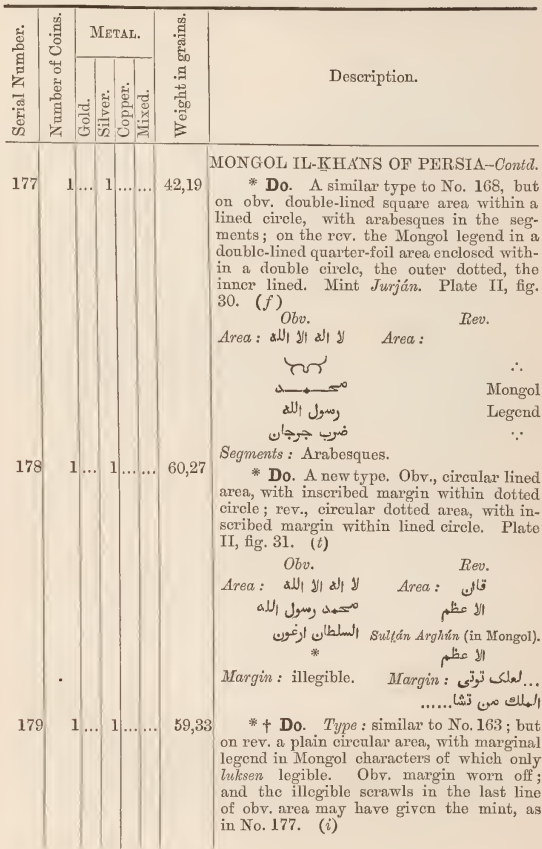 Serial Number.
Number of Coins.
METAL.
Gold.
Silver.
Copper.
Mixed.
Weight in grains.
Description.
MONGOL IL-KHÁNS OF PERSIA–Contd.
177 1 ... 1 ... ... 42,19 * Do. A similar type to No. 168, but
on obv. double-lined square area within a
lined circle, with arabesques in the seg-
ments; on the rev. the Mongol legend in a
double-lined quarter-foil area enclosed with-
in a double circle, the outer dotted, the
inner lined. Mint Jurján. Plate II, fig.
30. (f)
Obv. Rev.
Area : لا اله الا الله Area :
∴
محمد Mongol
رسول الله Legend
ضرب جرجان ∵
Segments : Arabesques.
178 1 ... 1 ... ... 60,27 * Do. A new type. Obv., circular lined
area, with inscribed margin within dotted
circle; rev., circular dotted area, with in-
scribed margin within lined circle. Plate
II, fig. 31. (t)
Obv. Rev.
Area : لا اله الا الله Area : قاان
محمد رسول الله الا عظم
السلطان ارغون Sulṭán Arghún (in Mongol).
* الا عظم
Margin : illegible. Margin : ...لعلک توتی
الملك من تشا......
179 1 ... 1 ... ... 59,33 * † Do. Type : similar to No. 163; but
on rev. a plain circular area, with marginal
legend in Mongol characters of which only
luksen legible. Obv. margin worn off;
and the illegible scrawls in the last line
of obv. area may have given the mint, as
in No. 177. (i)